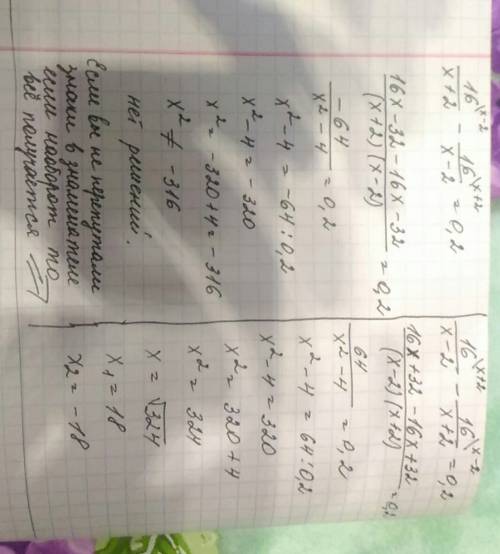 16\x-2 16\x+2
x+2 - x-2 = 0,2
16x - 32 - 16x - 32
(x+2)(x-2) = 0,2
-64
x² - 4 = 0,2
x² - 4 = -64 : 0,2
x² - 4 = -320
x² = -320 + 4 = -316
x² ≠ -316
нет решений.
Если вы не перепутали
знаки в знаменателе
если наоборот то
всё получается ⟹
16\x+2 16\x-2
x-2 - x+2 = 0,2
16x + 32 - 16x + 32
(x-2)(x+2) = 0,2
64
x² - 4 = 0,2
x² - 4 = 64 : 0,2
x² - 4 = 320
x² = 320 + 4
x² = 324
x = √324
x₁ = 18
x₂ = -18